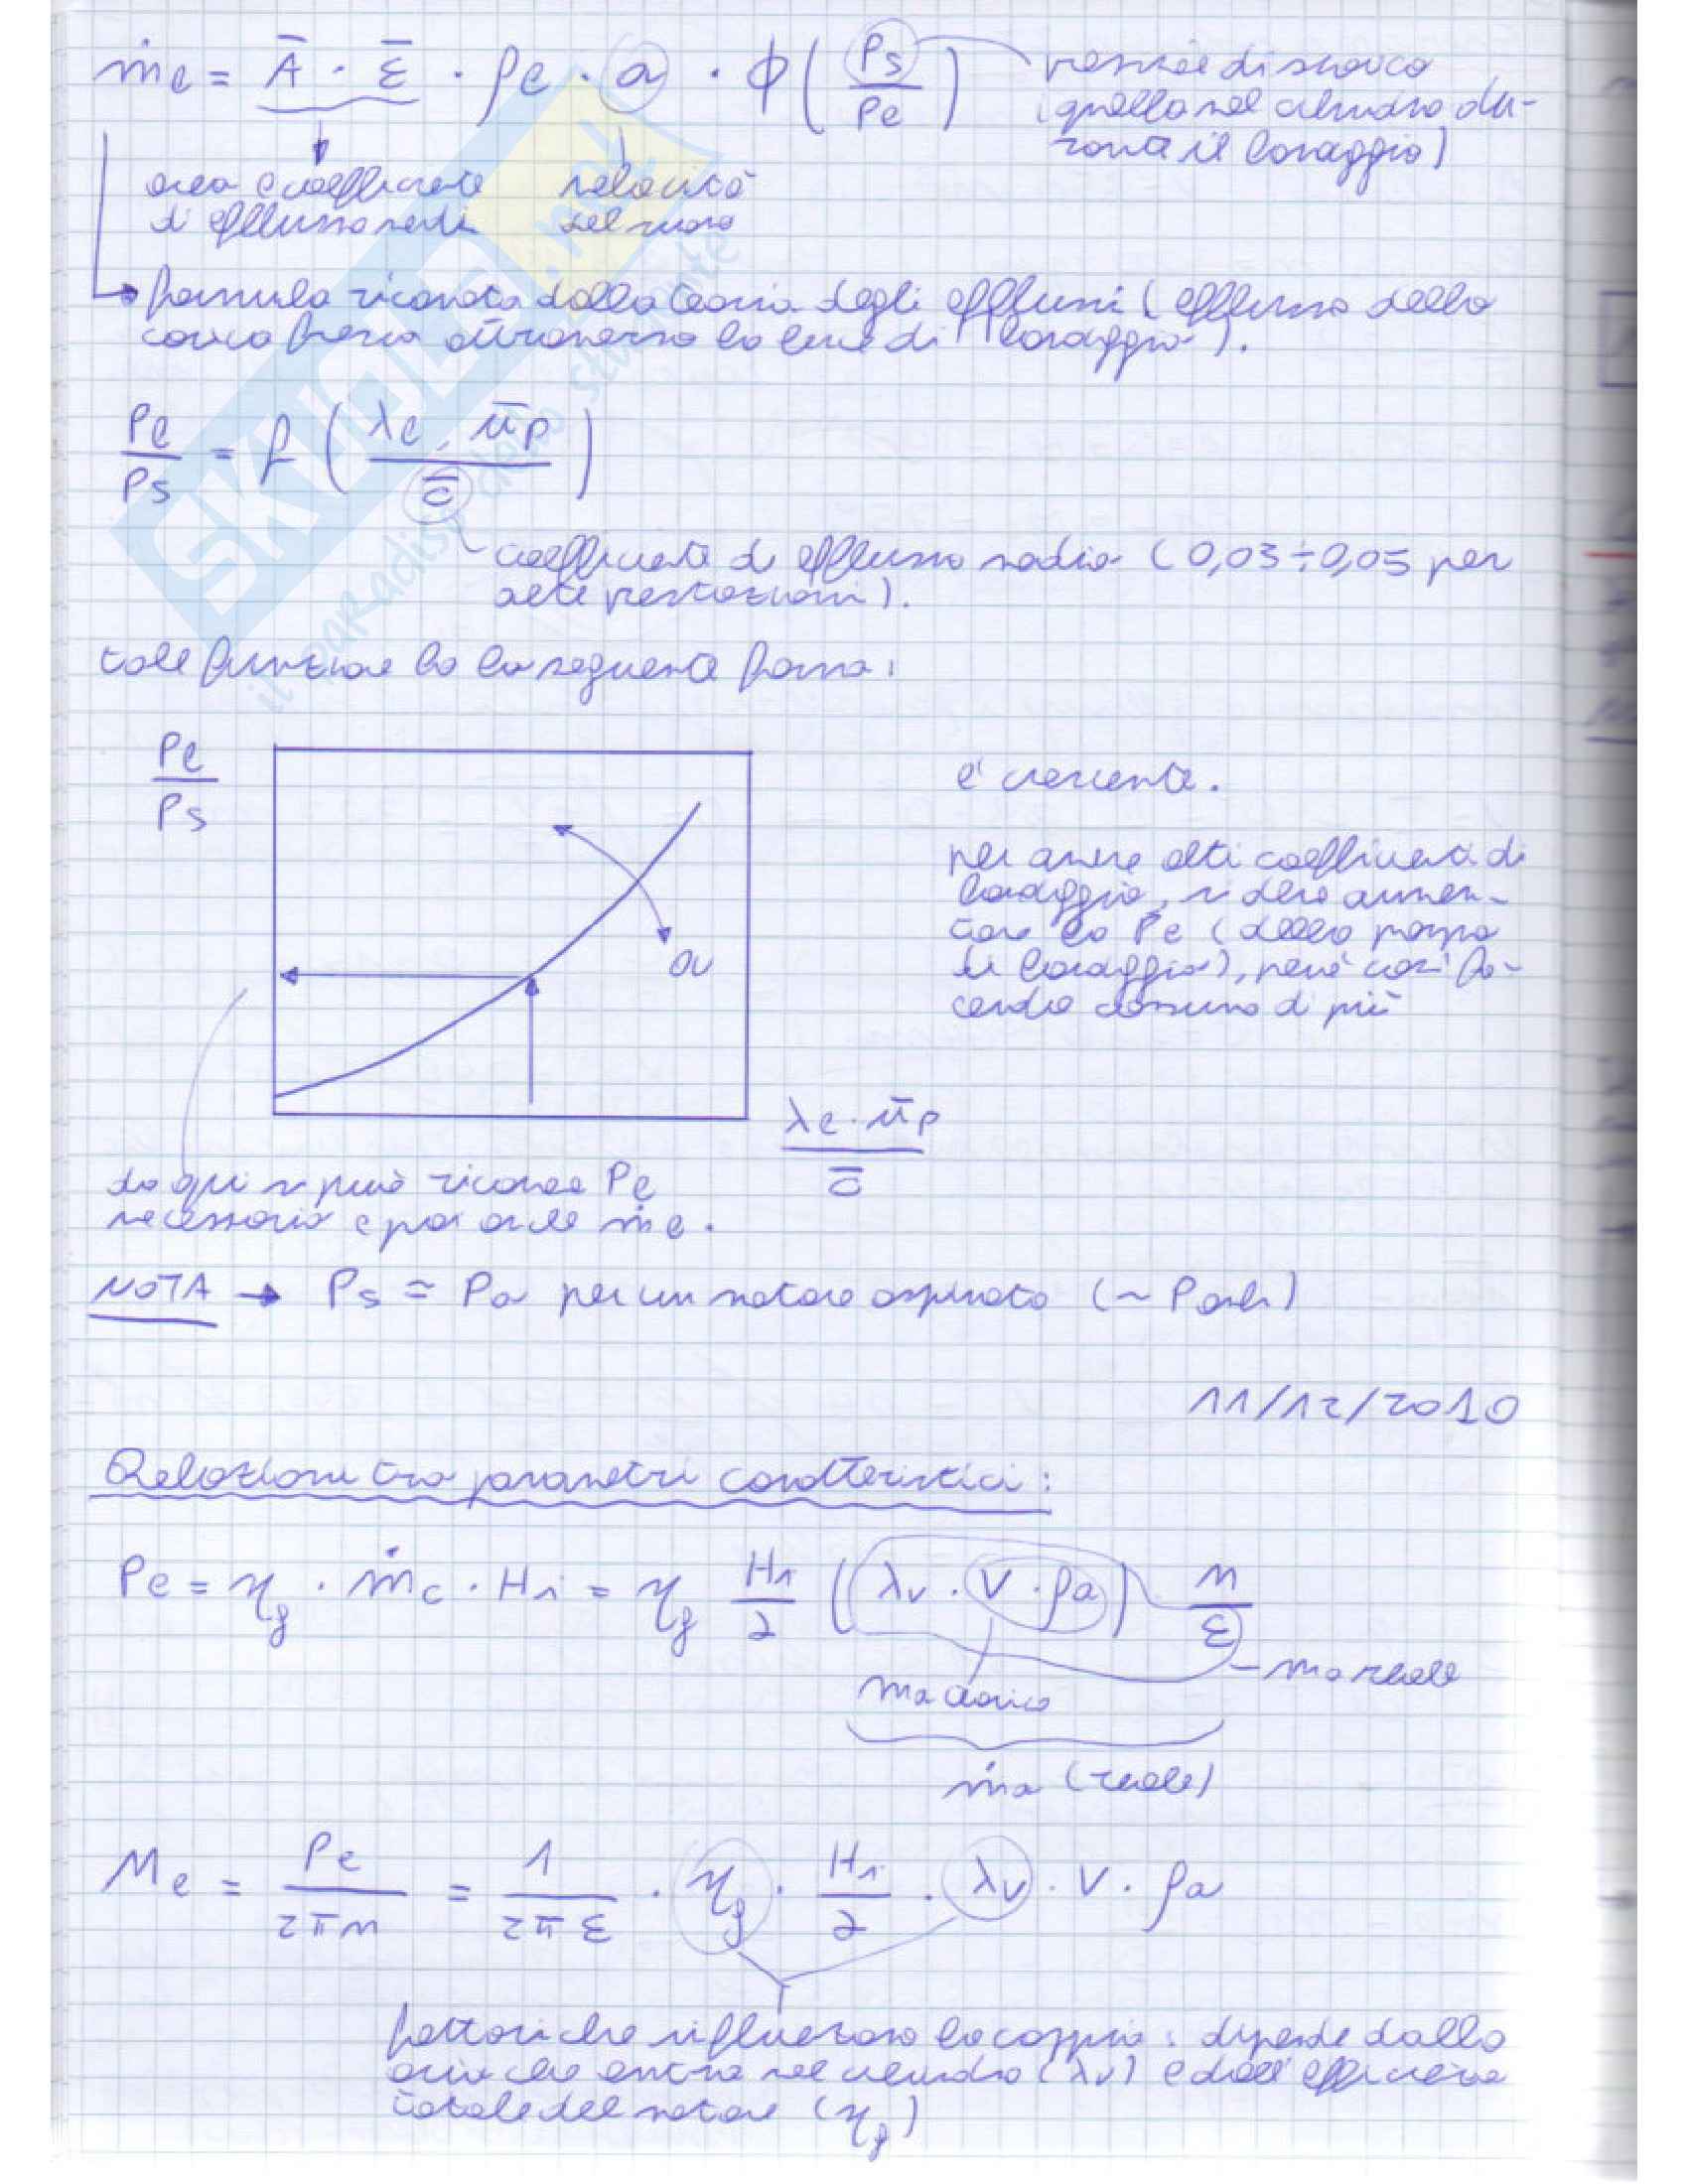 ṁe = Ā · ε̄ · ρe · a · ϕ ( Ps / Pe )
pressione di scarico
(quella nel cilindro du-
rante il lavaggio)
area e coefficiente
di efflusso medi
velocità
del suono
formula ricavata dalla teoria degli efflussi (efflusso della
carica fresca attraverso la luce di lavaggio).
Pe / Ps = f ( λe · ūp / c̄ )
coefficiente di efflusso medio (0,03÷0,05 per
alte prestazioni).
tale funzione ha la seguente forma:
Pe / Ps
è crescente.
per avere alti coefficienti di
lavaggio, si deve aumen-
tare la Pe (della pompa
di lavaggio), però così fa-
cendo consumo di più
a
λe · ūp / c̄
da qui si può ricavare Pe
necessaria e poi anche ṁe.
NOTA → Ps ≃ Pa per un motore aspirato (~ Pamb)
11/12/2010
Relazioni tra parametri caratteristici:
Pe = ηg · ṁc · Hi = ηg Hi / α ( λv · V · ρa ) n / ε
ma teorica
ma reale
ṁa (reale)
Me = Pe / 2πn = 1 / 2πε · ηg · Hi / α · λv · V · ρa
fattori che influenzano la coppia: dipende dalla
aria che entra nel cilindro (λv) e dall'efficienza
totale del motore (ηg)
SKUOLA.net
il paradiso dello studente